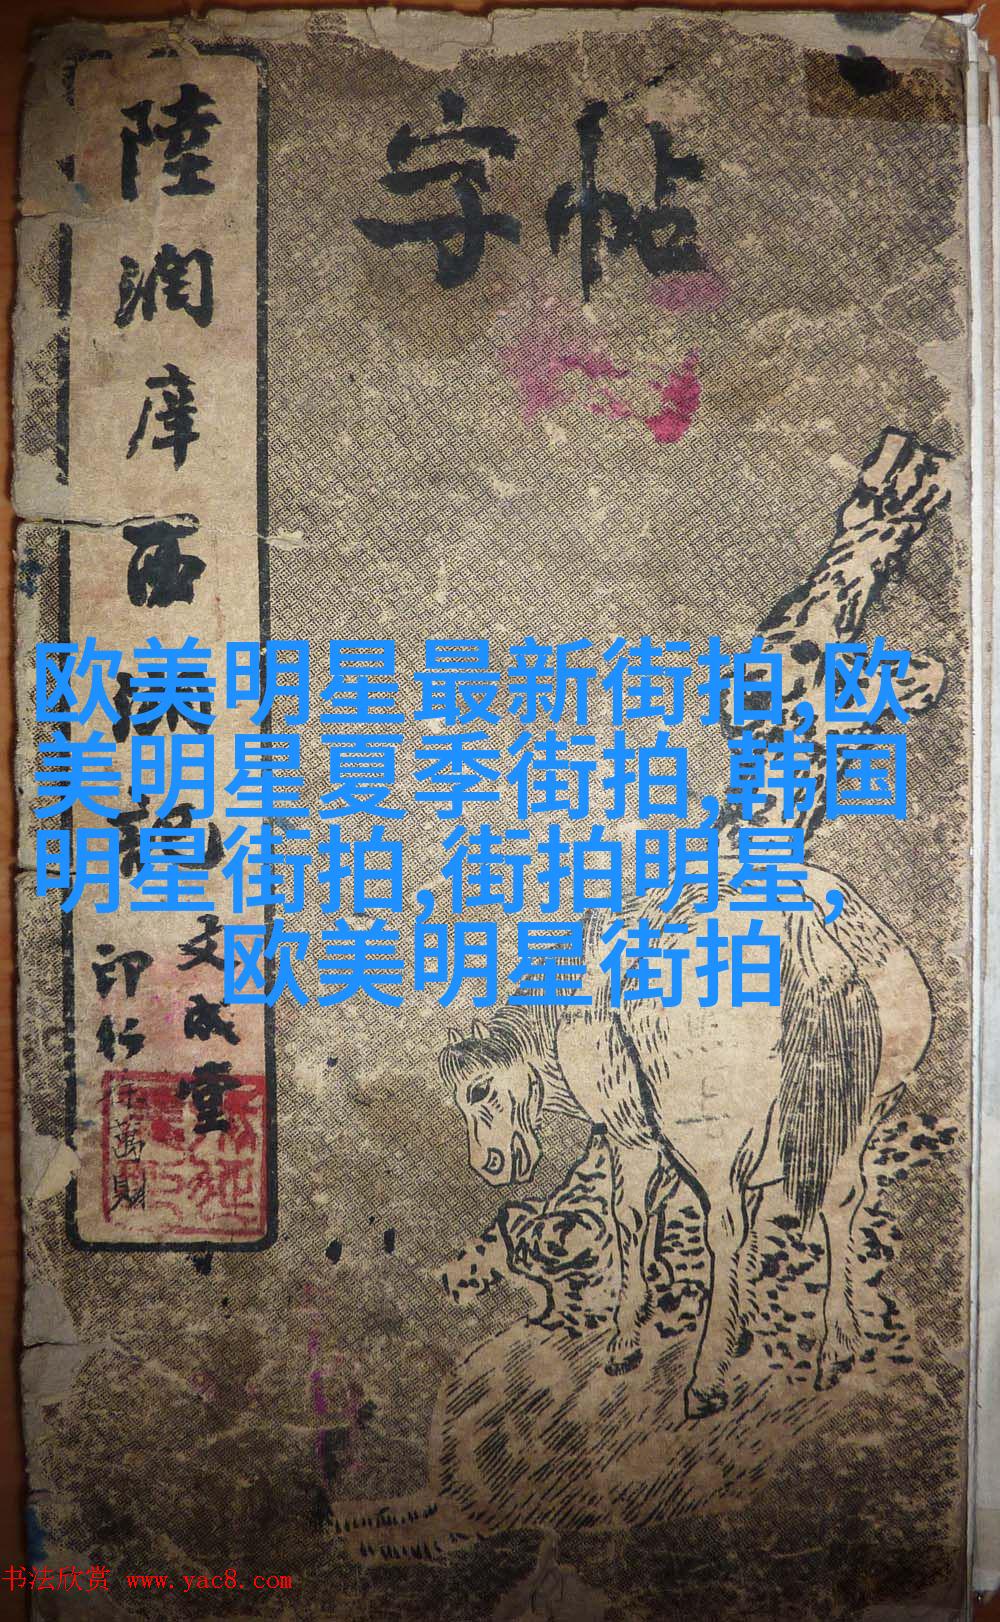 字帖
陸潤庠西湖記
文成堂
印行
徐萬財
欧美明星最新街拍,欧
美明星夏季街拍,韩国
明星街拍,街拍明星,
欧美明星街拍
书法欣赏 www.yac8.com